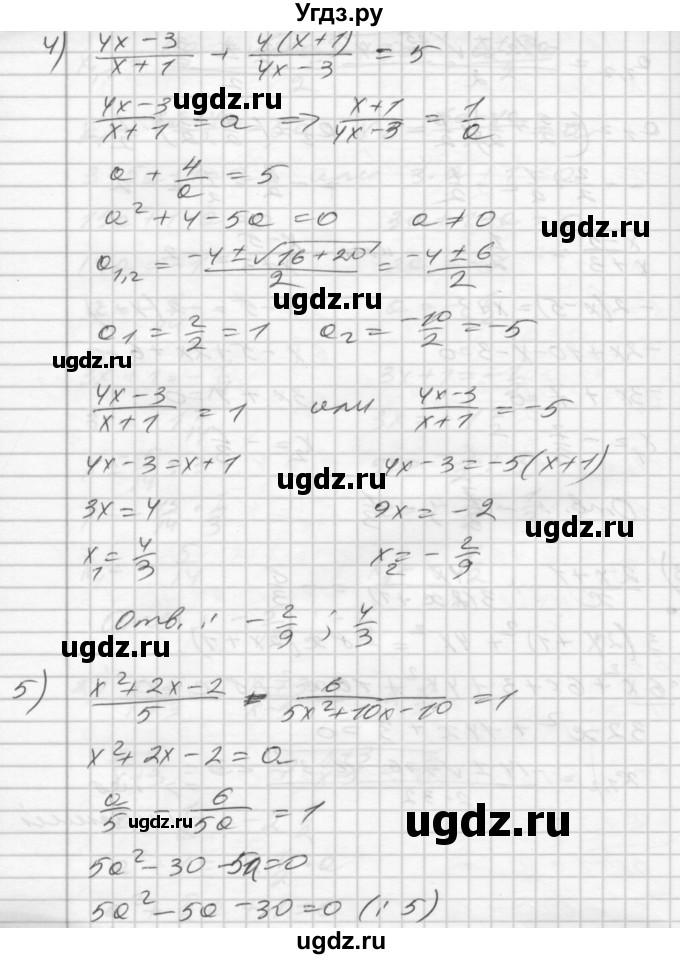 Угдз.ру
4) (4x-3)/(x+1) + 4(x+1)/(4x-3) = 5
ugdz.ru
(4x-3)/(x+1) = a => (x+1)/(4x-3) = 1/a
ugdz.ru
a + 4/a = 5
a² + 4 - 5a = 0 a ≠ 0
ugdz.ru
a₁,₂ = (-4 ± √(16+20))/2 = (-4 ± 6)/2
ugdz.ru
a₁ = 2/2 = 1 a₂ = -10/2 = -5
ugdz.ru
(4x-3)/(x+1) = 1 или (4x-3)/(x+1) = -5
4x-3 = x+1 4x-3 = -5(x+1)
ugdz.ru
3x = 4 9x = -2
ugdz.ru
x₁ = 4/3 x₂ = -2/9
Отв.: -2/9 ; 4/3
ugdz.ru
5) (x²+2x-2)/5 - 6/(5x²+10x-10) = 1
x²+2x-2 = a
a/5 - 6/5a = 1
ugdz.ru
ugdz.ru
5a² - 30 - 5a = 0
5a² - 5a - 30 = 0 (: 5)
ugdz.ru